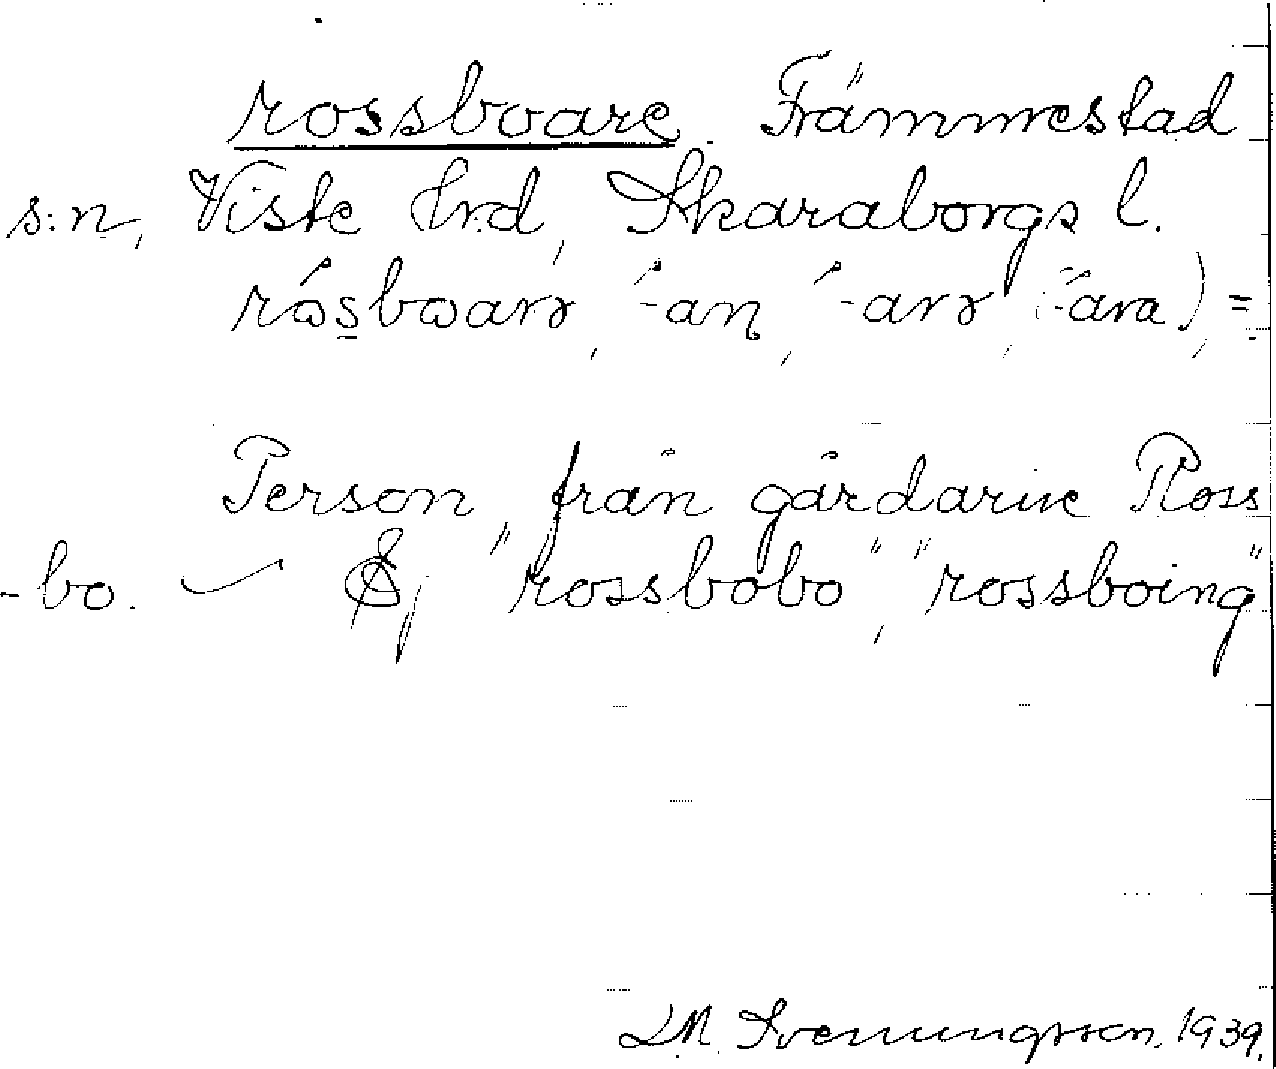 rossboare. Främmestad
s:n, Viste hrd, Skaraborgs l.
-an, -arr, =
Person från gårdarne Ross
-bo. "rossbobo", "rossboing"
S. M. Svenungsson. 1939.